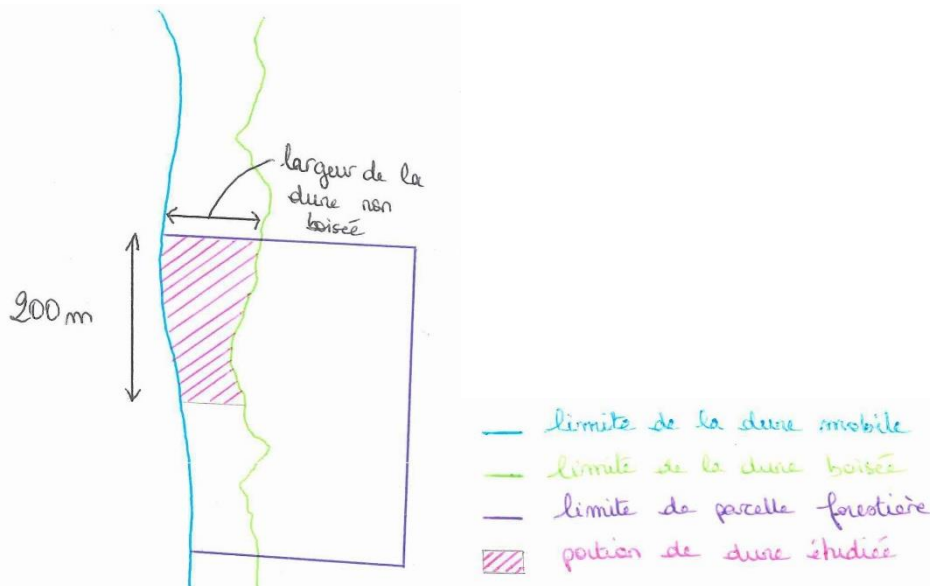 largeur de la
dune non
boisée
200 m
limite de la dune mobile
limite de la dune boisée
limite de parcelle forestière
portion de dune étudiée